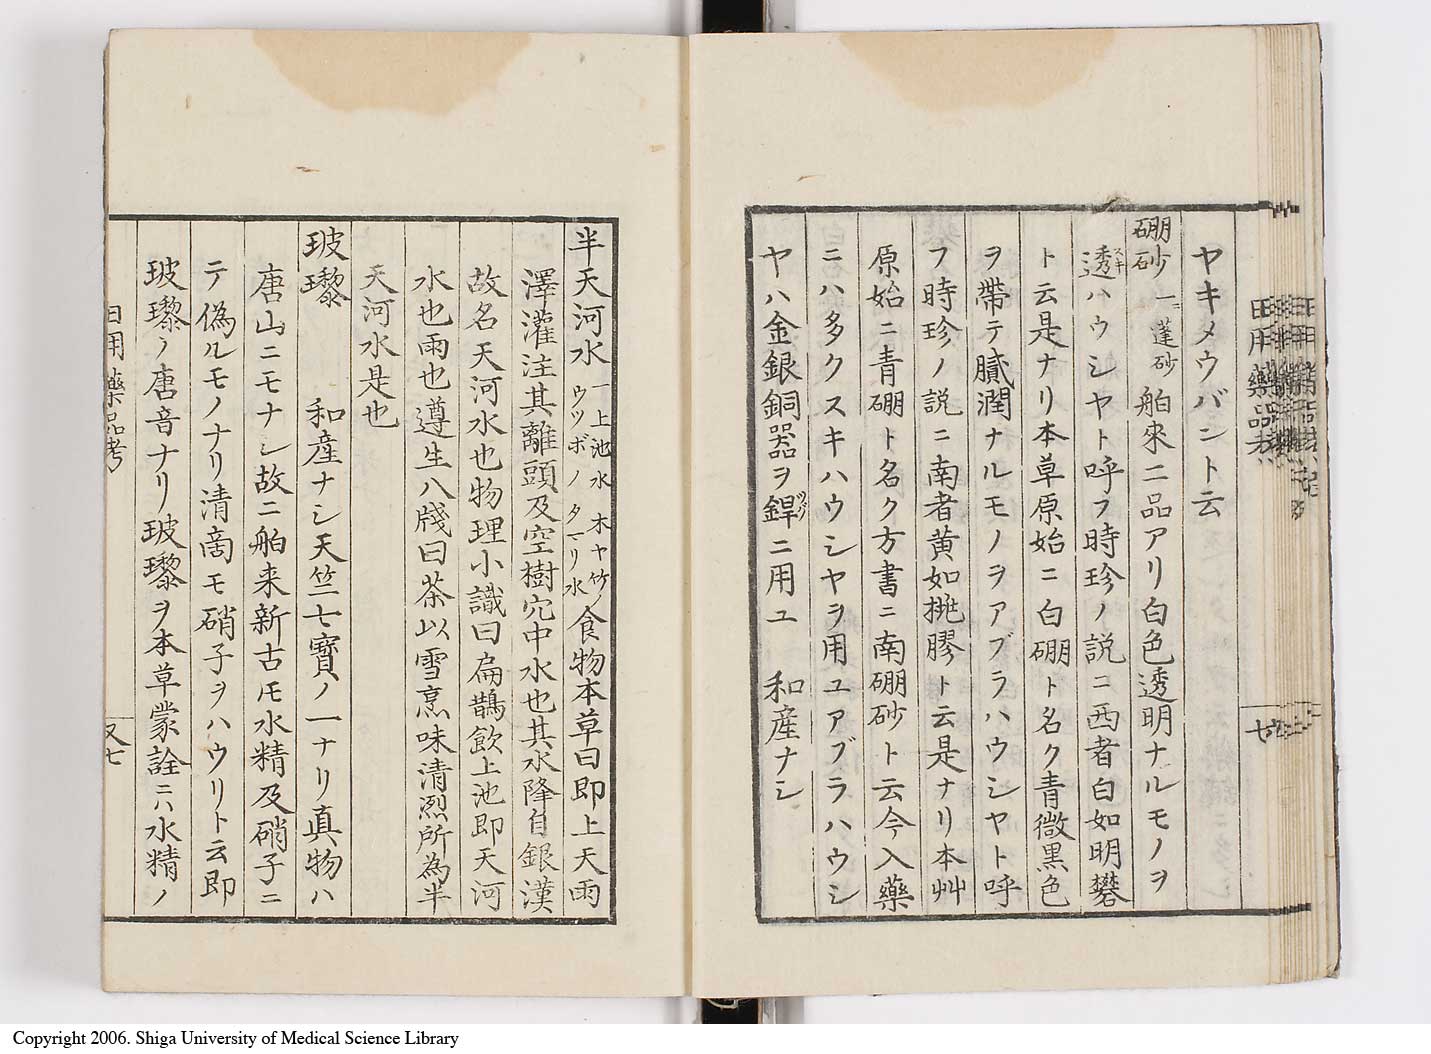 ヤキメウバント云
硼砂 一ニ蓬砂 舶來二品アリ白色透明ナルモノヲ
透スキハウシヤト呼フ時珍ノ説ニ西者白如明礬
ト云是ナリ本草原始ニ白硼ト名ク青微黒色
ヲ帶テ膩潤ナルモノヲアブラハウシヤト呼
フ時珍ノ説ニ南者黄如桃膠ト云是ナリ本艸
原始ニ青硼ト名ク方書ニ南硼砂ト云今入藥
ニハ多クスキハウシヤヲ用ユアブラハウシ
ヤハ金銀銅器ヲ銲ニ用ユ 和産ナシ
日用藥品考
七
半天河水 一上池水 木ヤ竹ノウツボノタマリ水 食物本草曰即上天雨
澤灌注其離頭及空樹穴中水也其水降自銀漢
故名天河水也物理小識曰扁鵲飲上池即天河
水也雨也遵生八牋曰茶以雪烹味清烈所為半
天河水是也
玻瓈 和産ナシ天竺七寳ノ一ナリ真物ハ
唐山ニモナシ故ニ舶来新古モ水精及硝子ニ
テ偽ルモノナリ清商モ硝子ヲハウリト云即
玻瓈ノ唐音ナリ玻瓈ヲ本草蒙詮ニハ水精ノ
日用藥品考
又七
Copyright 2006. Shiga University of Medical Science Library